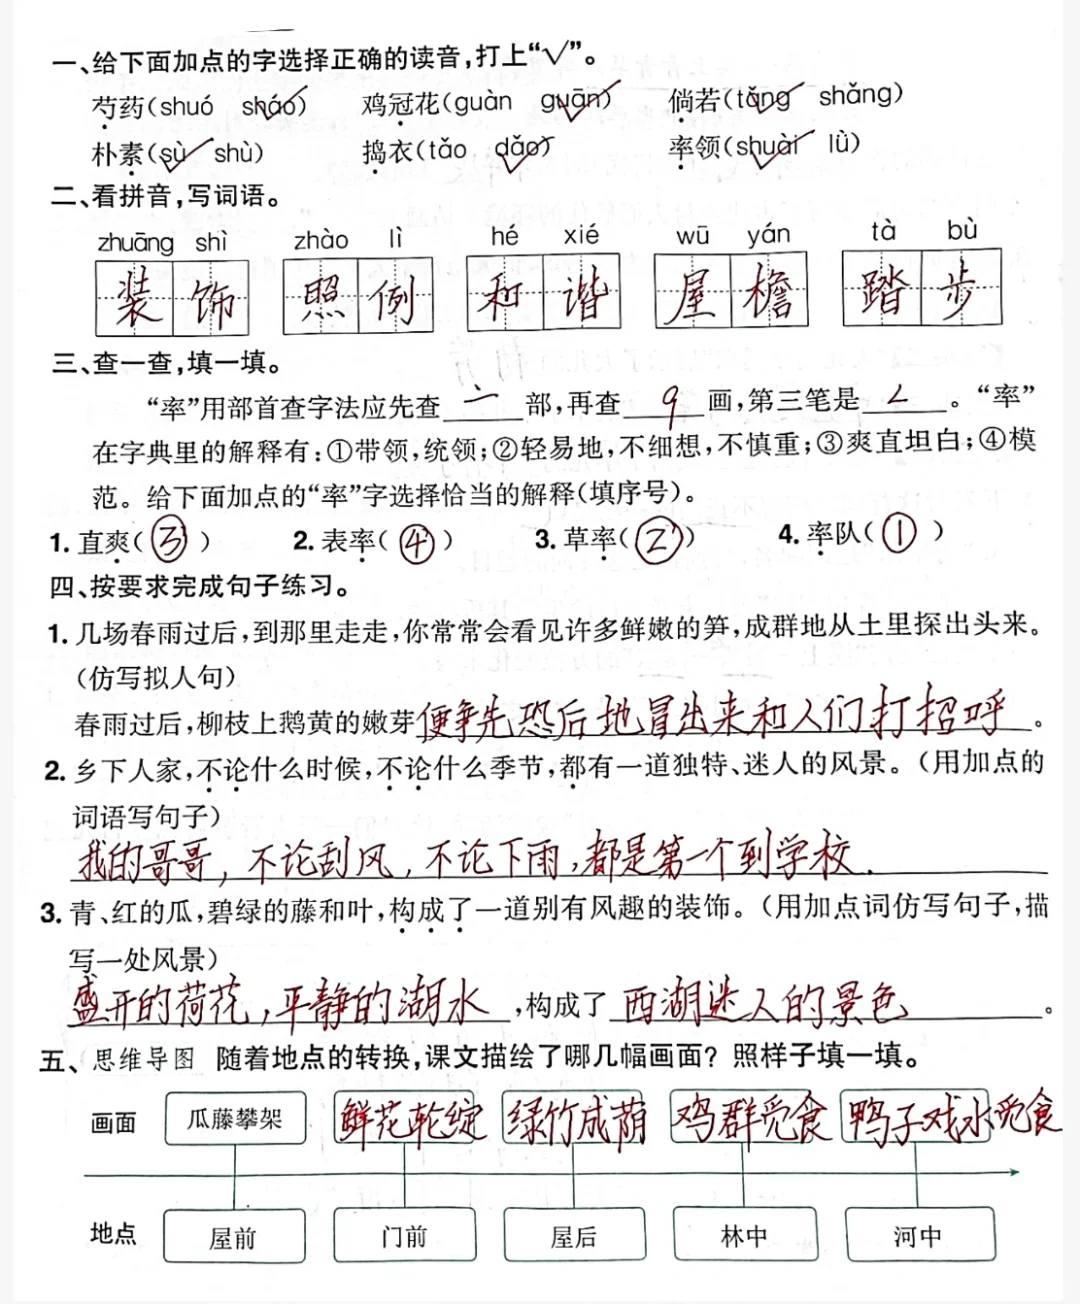 一、给下面加点的字选择正确的读音,打上“√”。
芍药(shuó sháo√) 鸡冠花(guàn guān√) 倘若(tǎng√ shǎng)
朴素(sù√ shù) 捣衣(tǎo dǎo√) 率领(shuài√ lǜ)
二、看拼音,写词语。
zhuāng shì zhào lì hé xié wū yán tà bù
装饰 照例 和谐 屋檐 踏步
三、查一查,填一填。
“率”用部首查字法应先查 亠 部,再查 9 画,第三笔是 ㄥ 。“率”
在字典里的解释有:①带领,统领;②轻易地,不细想,不慎重;③爽直坦白;④模
范。给下面加点的“率”字选择恰当的解释(填序号)。
1. 直爽(③) 2. 表率(④) 3. 草率(②) 4. 率队(①)
四、按要求完成句子练习。
1. 几场春雨过后,到那里走走,你常常会看见许多鲜嫩的笋,成群地从土里探出头来。
(仿写拟人句)
春雨过后,柳枝上鹅黄的嫩芽便争先恐后地冒出来和人们打招呼。
2. 乡下人家,不论什么时候,不论什么季节,都有一道独特、迷人的风景。(用加点的
词语写句子)
我的哥哥,不论刮风,不论下雨,都是第一个到学校.
3. 青、红的瓜,碧绿的藤和叶,构成了一道别有风趣的装饰。(用加点词仿写句子,描
写一处风景)
盛开的荷花,平静的湖水,构成了西湖迷人的景色。
五、思维导图 随着地点的转换,课文描绘了哪几幅画面?照样子填一填。
画面 瓜藤攀架 鲜花轮绽 绿竹成荫 鸡群觅食 鸭子戏水觅食
地点 屋前 门前 屋后 林中 河中